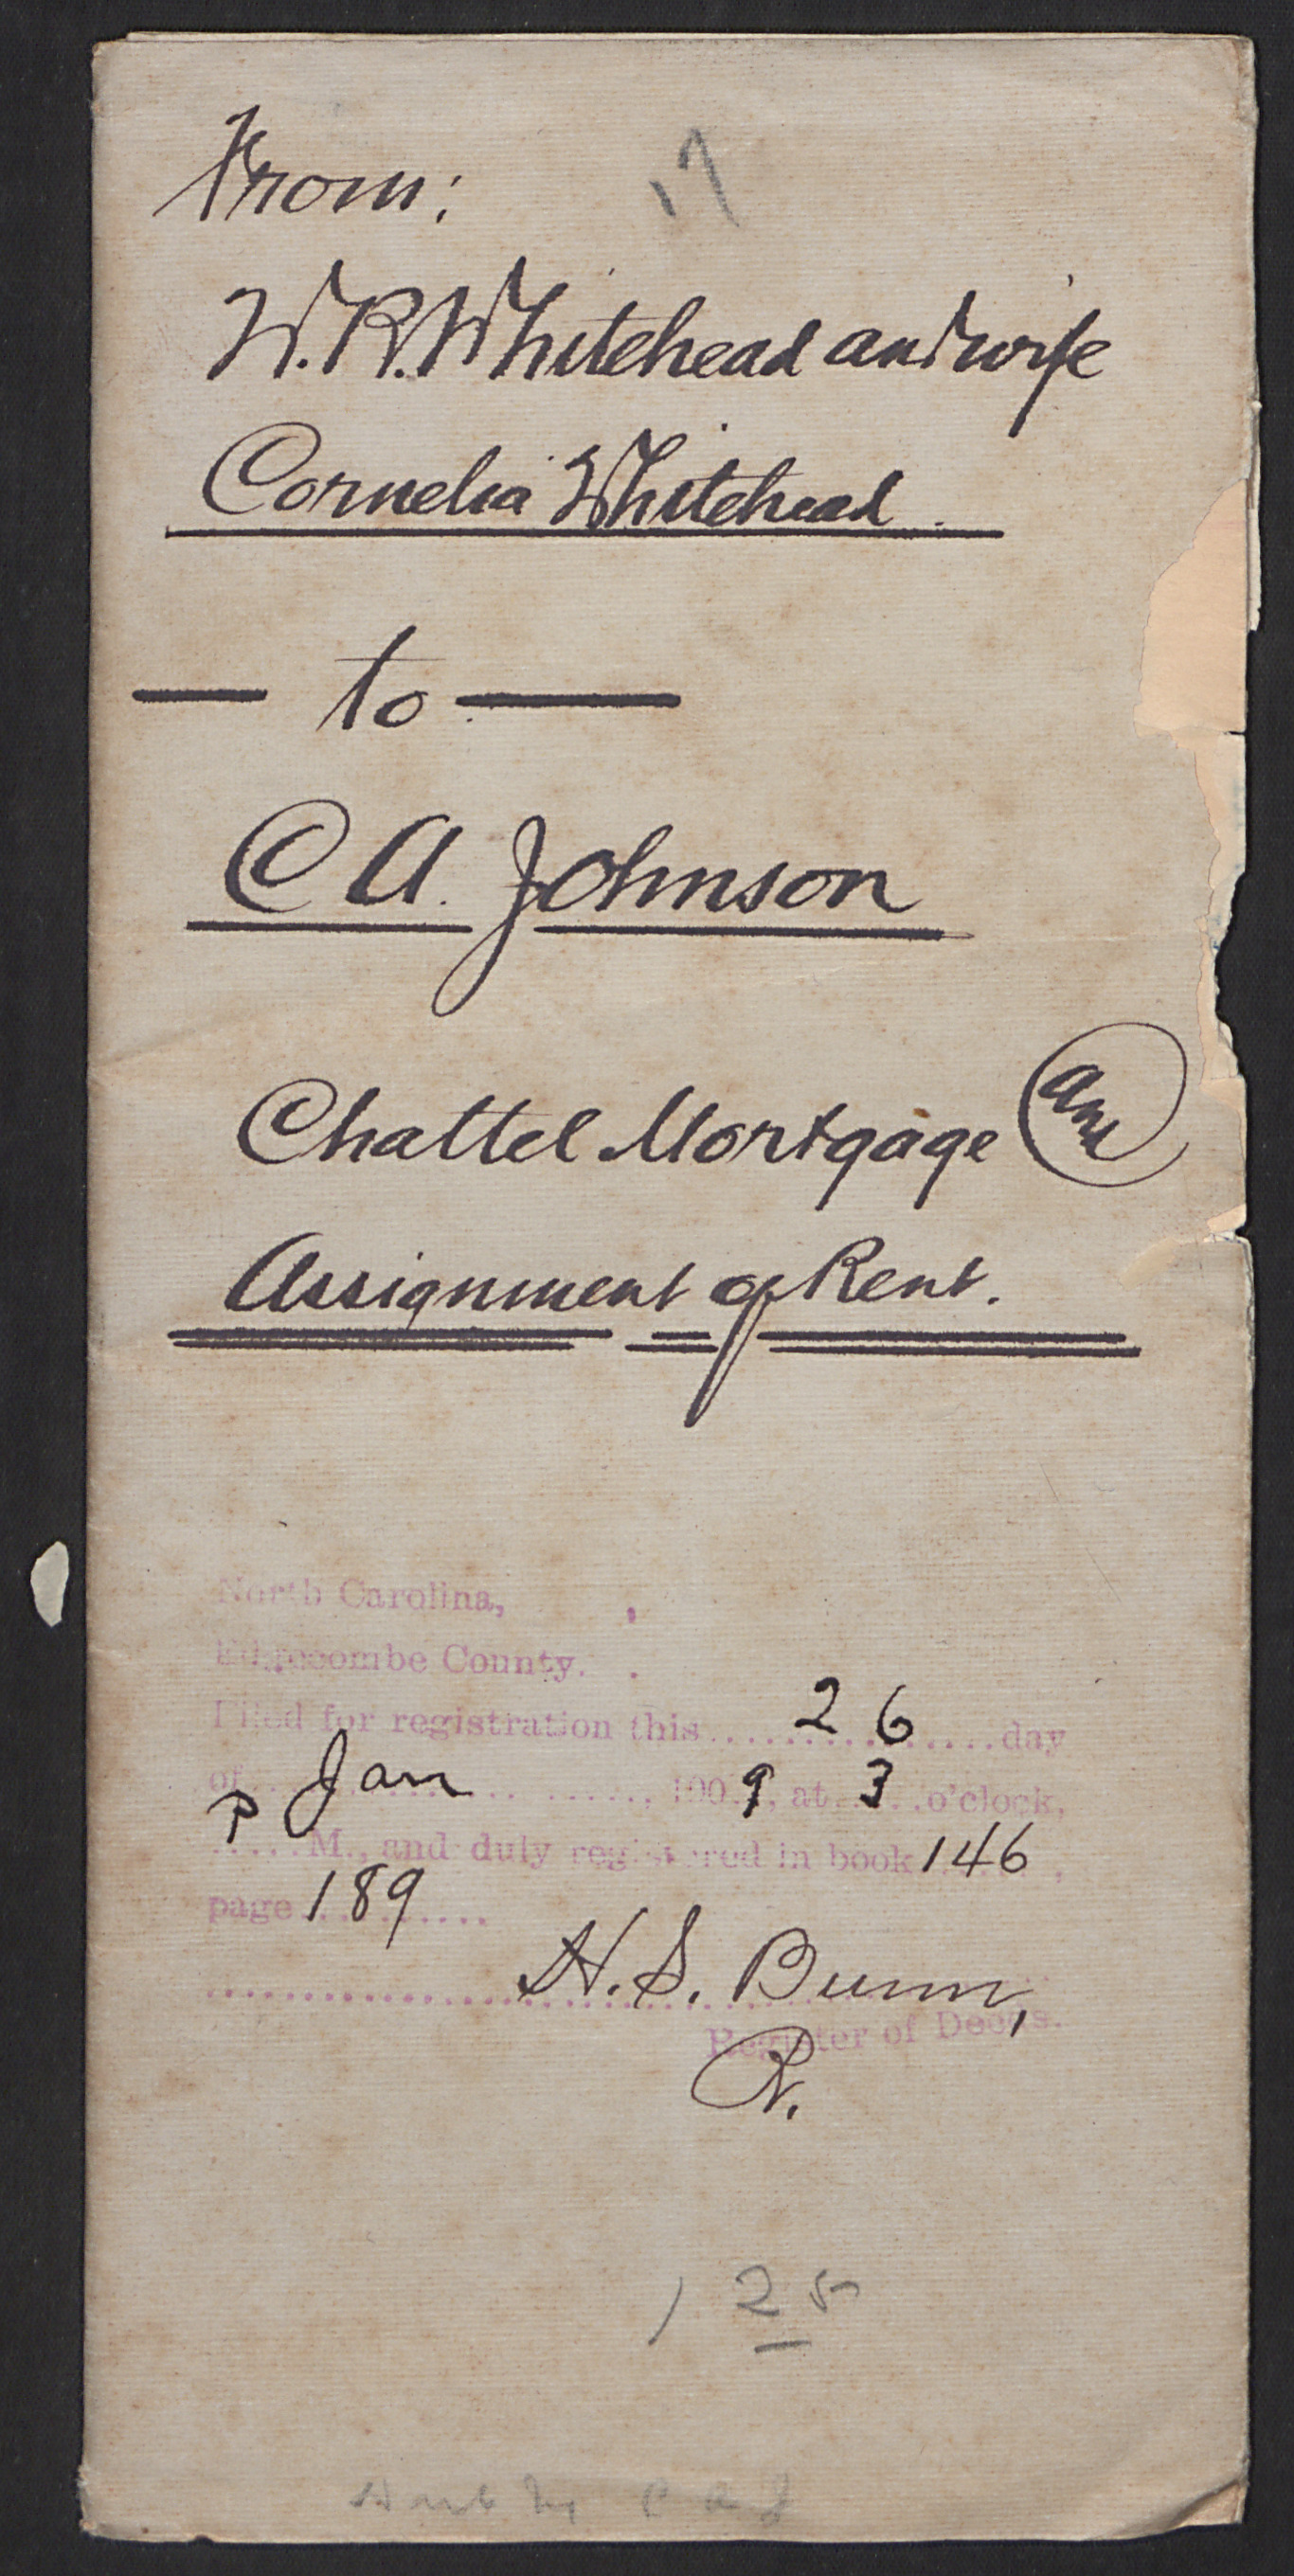 From:
17
W. R. Whitehead and wife
Cornelia Whitehead.
— to —
C A. Johnson
Chattel Mortgage and
Assignment of Rent.
North Carolina,
Edgecombe County.
Filed for registration this 26 day
of Jan, 1909, at 3 o'clock,
P M., and duly registered in book 146,
page 189
H. S. Bunn,
Register of Deeds.
R.
1 25